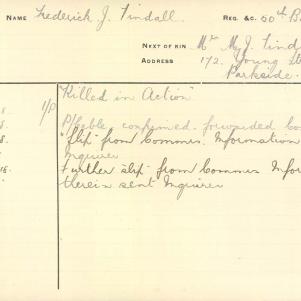 NAME Frederick J. Tindall. REG. &C. 50th B
NEXT OF KIN Mr M.J. Tind
ADDRESS 172. Young St
Parkside.
"Killed in Action"
8. 1/P
8. confirmed. forwarded Co
8. "slip" from Commrs. Information
Inquirer
18. Further slip from Commrs Infor
therein sent Inquirer